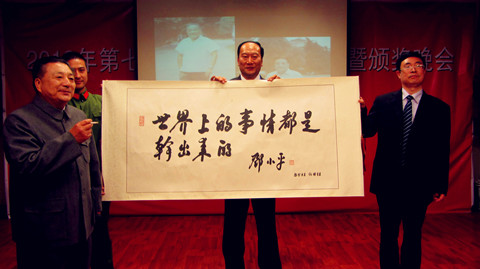 2012年第七
暨颁奖晚会
世界上的事情都是
幹出来的
邓小平